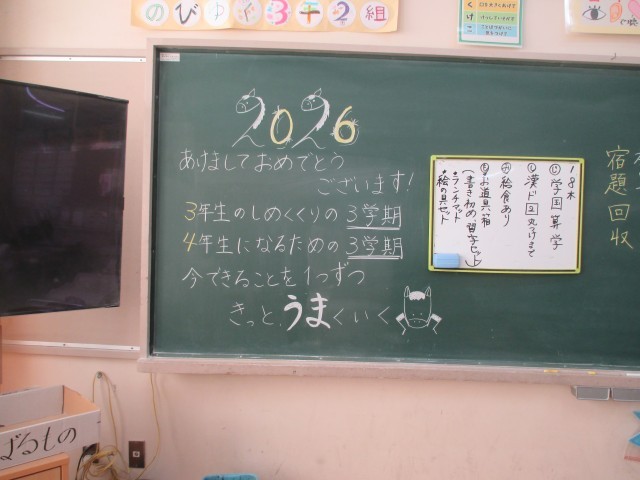 のびゆく3年2組
2026
あけましておめでとう
ございます!
3年生のしめくくりの3学期
4年生になるための3学期
今できることを1つずつ
きっと、うまくいく
1 8 木
じ 学 国 算 学
し 漢ド 丸つけまで
も お道具箱
(書き初め、習字セット)
・ランチマット
・絵の具セット
給食あり
宿題回収
ばるもの